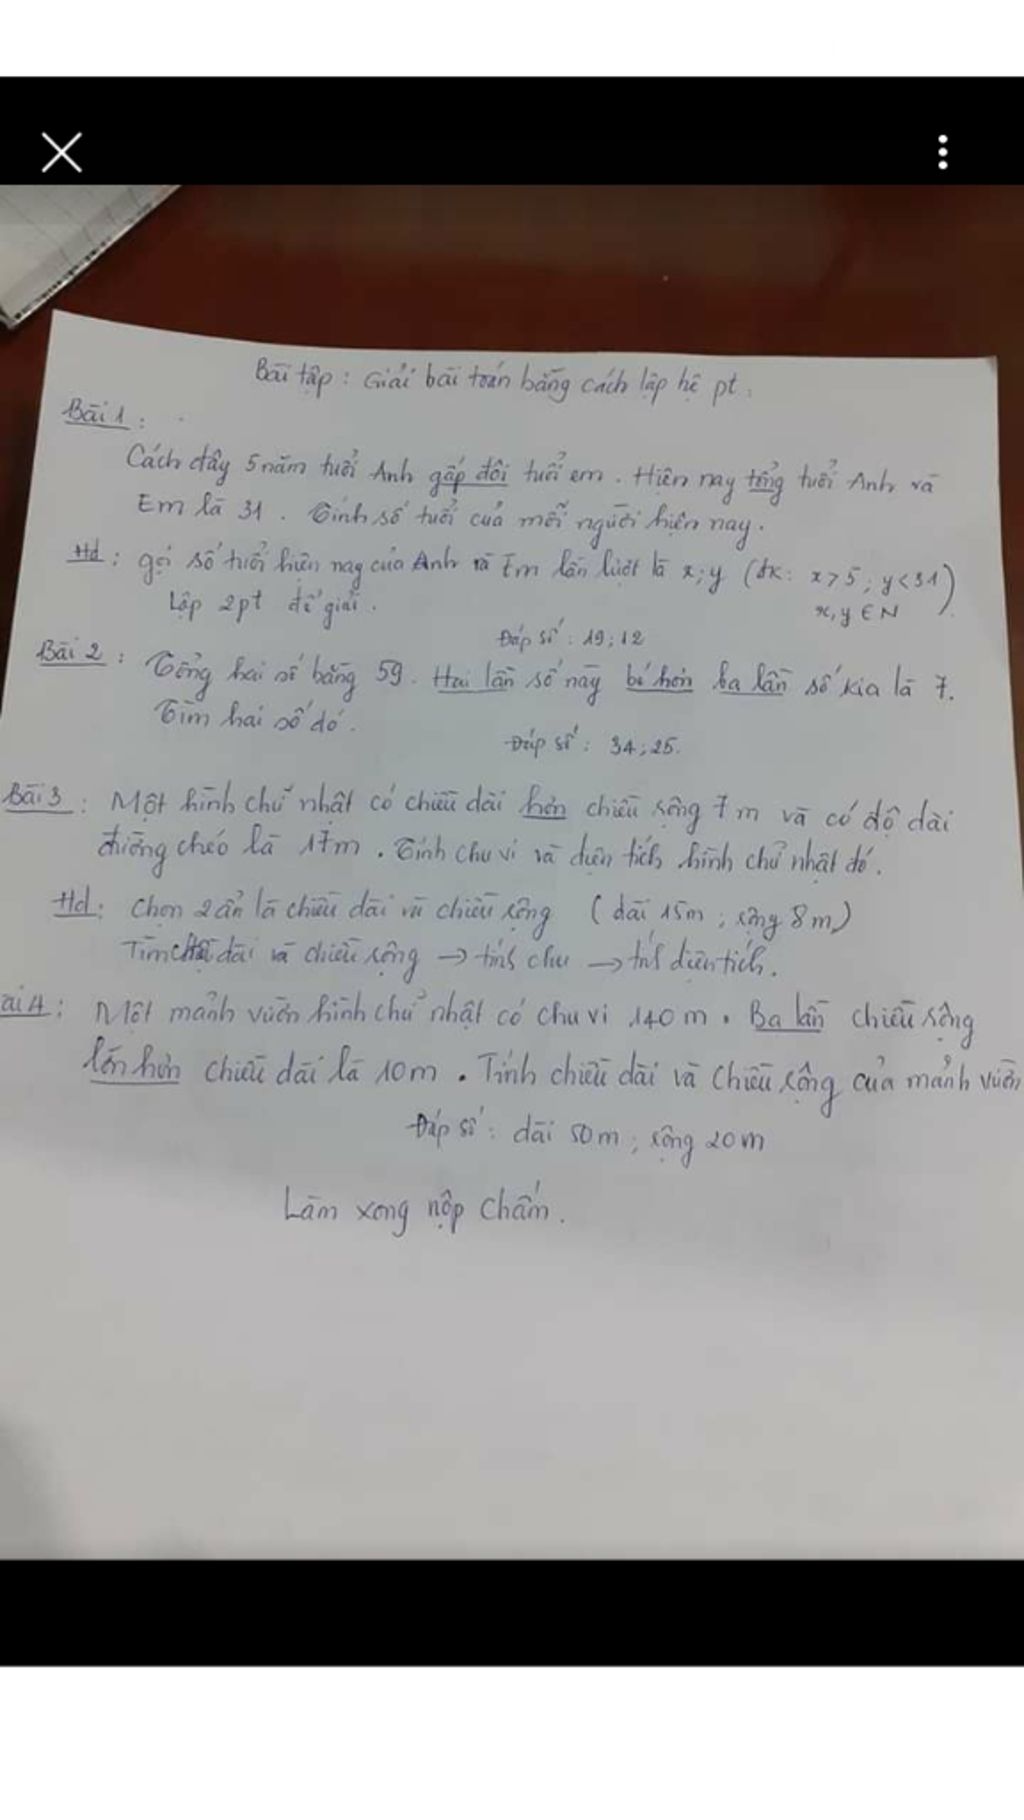 Bài tập : Giải bài toán bằng cách lập hệ pt.
Bài 1 :
Cách đây 5 năm tuổi Anh gấp đôi tuổi em. Hiện nay tổng tuổi Anh và
Em là 31. Tính số tuổi của mỗi người hiện nay.
Hd : gọi số tuổi hiện nay của Anh và Em lần lượt là x; y (đk: x>5; y<31)
x,y ∈ N
Lập 2pt để giải.
Đáp số : 19; 12
Bài 2 : Tổng hai số bằng 59. Hai lần số này bé hơn ba lần số kia là 7.
Tìm hai số đó.
Đáp số : 34; 25.
Bài 3 : Một hình chữ nhật có chiều dài hơn chiều rộng 7m và có độ dài
đường chéo là 17m. Tính chu vi và diện tích hình chữ nhật đó.
Hd : Chọn 2 ẩn là chiều dài và chiều rộng (dài 15m; rộng 8m)
Tìm dài và chiều rộng → tính chu → tính diện tích.
ài 4 : Một mảnh vườn hình chữ nhật có chu vi 140m. Ba lần chiều rộng
lớn hơn chiều dài là 10m. Tính chiều dài và chiều rộng của mảnh vườn
Đáp số : dài 50m; rộng 20m
Làm xong nộp chấm.